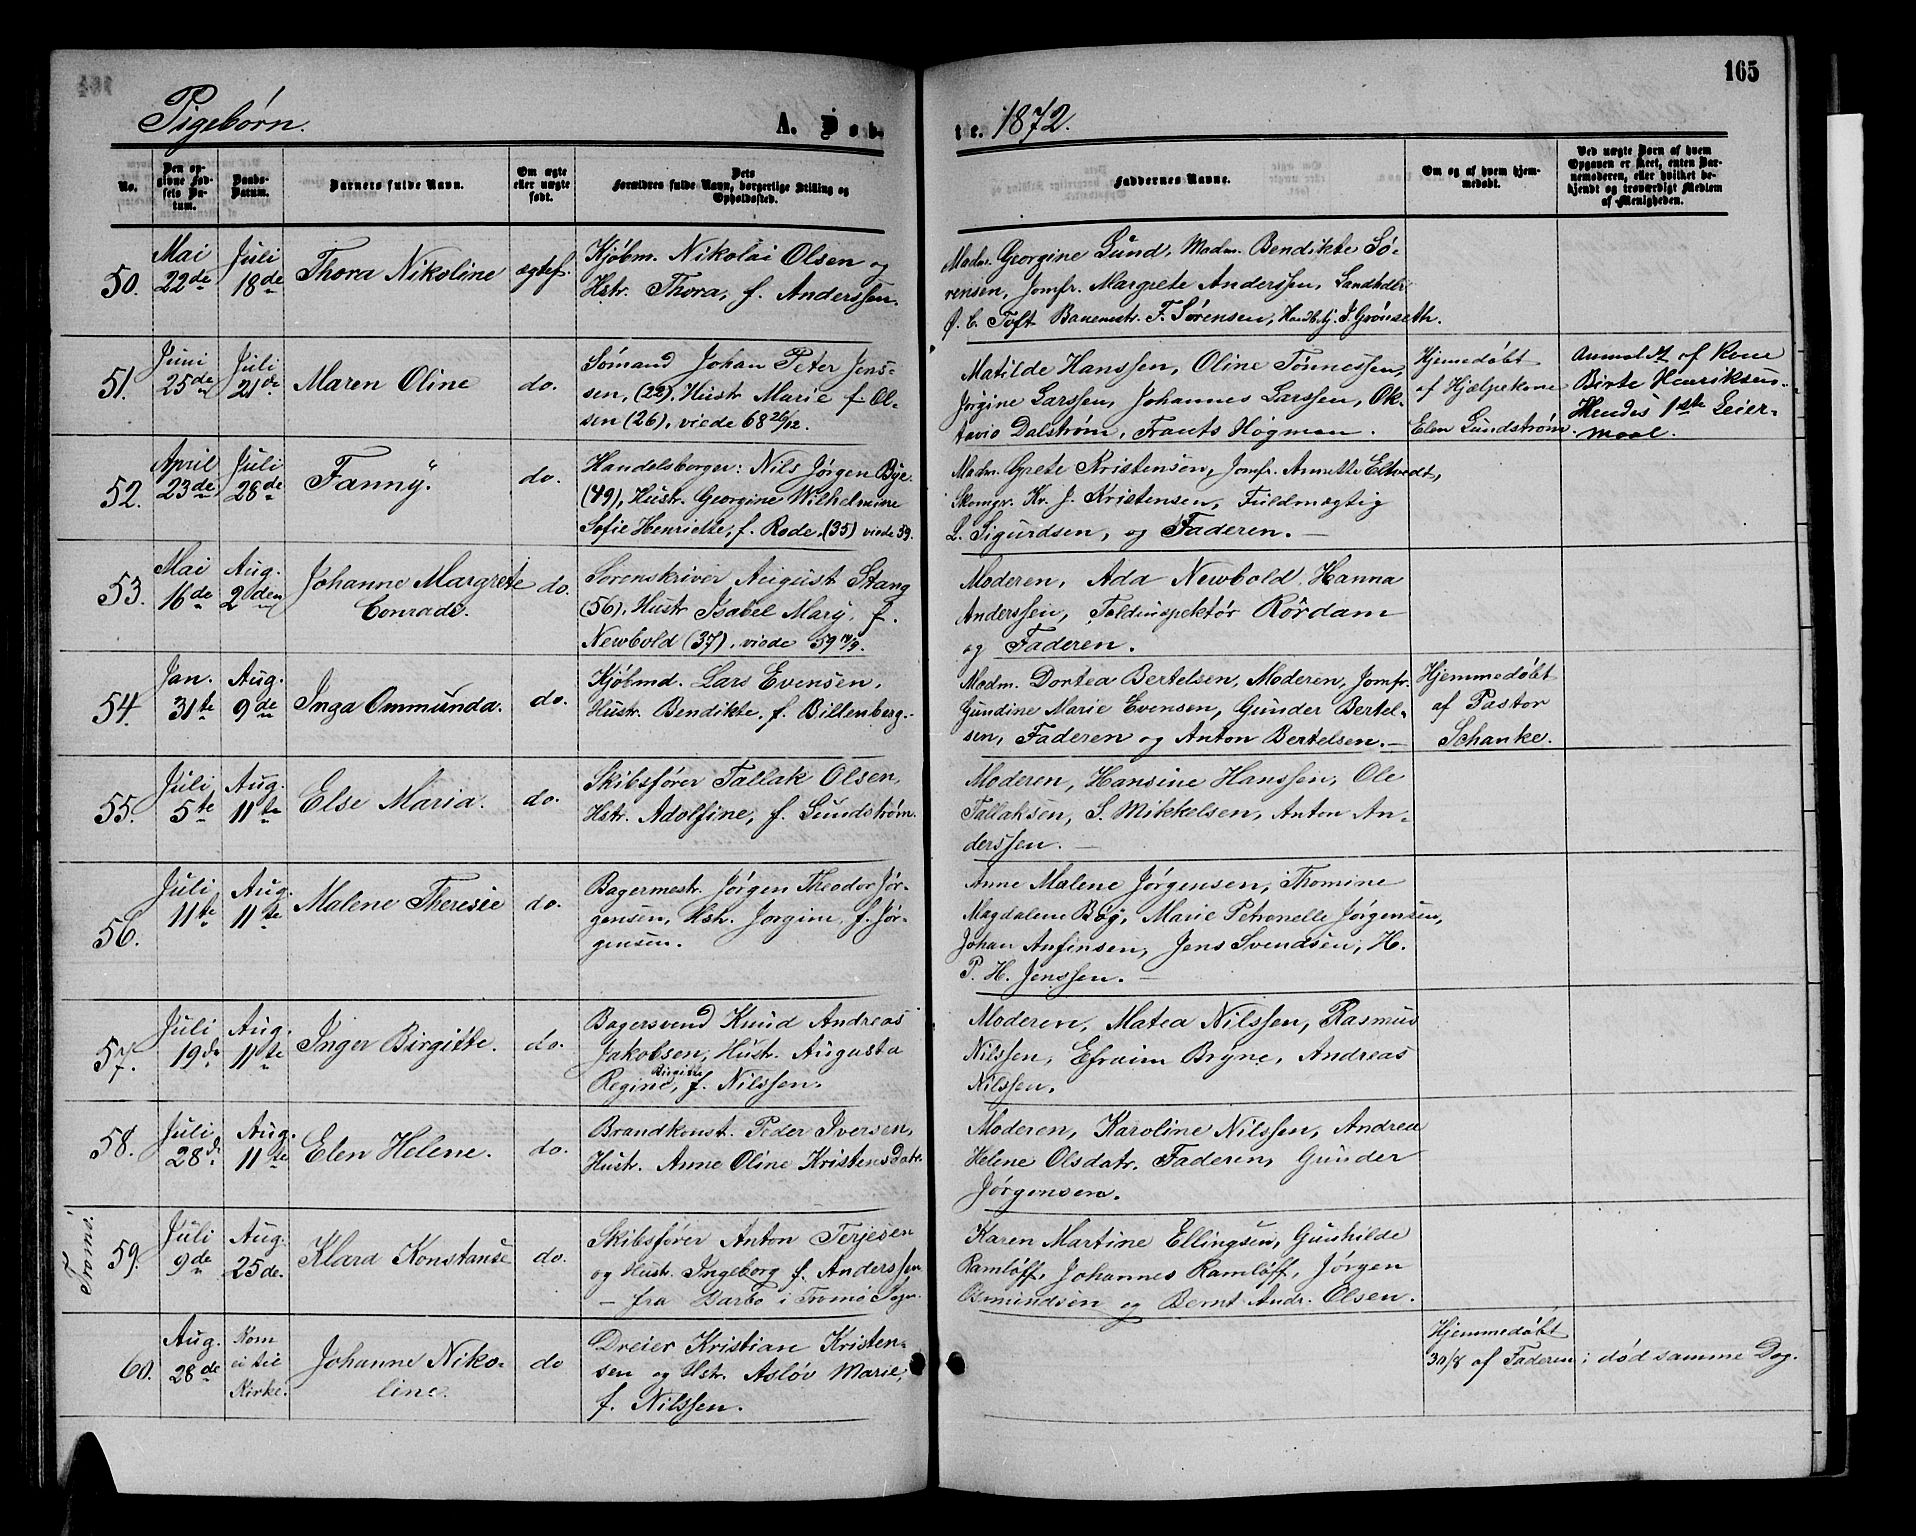 165
Pigebørn. A. Døb-
te. 1872.
No.
Den op-
givne Fød-
sels Da-
tum.
Daabs-
Datum.
Barnets fulde Navn.
Om ægte
eller uægte
født.
Dets
Forældres fulde Navn, borgerlige Stilling og
Opholdssted.
Faddernes Navne.
Om og af hvem hjem-
medøbt.
Ved uægte Børn af hvem
Opgaven er skeet, enten Bar-
nemoderen, eller hvilket be-
kjendt og troværdigt Medlem
af Menigheden.
50.
Mai
22de
Juli
18de
Thora Nikoline
ægtef.
Kjøbm. Nikolai Olsen og
Hstr. Thora, f. Anderssen.
Madm. Georgine Lund, Madm. Bendikte Sø-
rensen, Jomfr. Margrete Anderssen,
C. Toft F. Sørensen, Grønseth.
51.
Juni
25de
Juli
21de
Maren Oline
do.
Sømand Johan Peter Jens-
sen, (22), Hustr Marie f. Ol-
sen (26), viede 68 26/12.
Matilde Hanssen, Oline Tønnessen,
Jørgine Larssen, Johannes Larssen, Ok-
tavio Dalstrøm, Frants Høgman.
Hjemmedøbt
af Hjælpekone
Elen Lundstrøm.
Anmeldt af Kone
Birte Henriksen.
Hendes 1ste Leier-
maal.
52.
April
23de
Juli
28de
Fanny.
do.
Handelsborger: Nils Jørgen Bye
(49), Hustr. Georgine Wilhelmine
Sofie Henriette, f. Rode, (35) viede 59.
Madm. Grete Kristensen, Jomfr. Annette Eltvedt,
Skomgr. Kr. J. Kristensen, Fuldmægtig
L. Sigurdsen, og Faderen.
53.
Mai
16de
Aug.
2den
Johanne Margrete
Conrade.
do.
Sorenskriver August Stang
(56), Hustr Isabel Mary, f.
Newbold (37), viede 59
Moderen, Ada Newbold, Hanna
Anderssen, Toldinspektør Rørdam
og Faderen.
54.
Jan.
31te
Aug.
9de
Inga Ommunda.
do.
Kjøbmd. Lars Evensen,
Hustr. Bendikte, f. Billenberg.
Madm. Dortea Bertelsen, Moderen, Jomfr.
Gundine Marie Evensen, Gunder Bertel-
sen, Faderen og Anton Bertelsen.
Hjemmedøbt
af Pastor
Schanke.
55.
Juli
5te
Aug.
11te
Else Maria.
do.
Skibsfører Tallak Olsen,
Hstr. Adolfine, f. Lundstrøm.
Moderen, Hansine Hanssen, Ole
Tallaksen, S. Mikkelsen, Anton An-
derssen.
56.
Juli
11te
Aug.
11te
Malene Theresie
do.
Bagermestr. Jørgen Theodor Jør-
gensen, Hstr. Jørgine, f. Jør-
gensen.
Anne Malene Jørgensen, Thomine
Magdalene Bøg, Marie Petronelle Jørgensen,
Johan Anfinsen, Jens Svendsen, H.
P. H. Jenssen.
57.
Juli
19de
Aug.
11te
Inger Birgitte.
do.
Bagersvend Knud Andreas
Jakobsen, Hustr. Augusta
Regine Birgitte, f. Nilssen.
Moderen, Matea Nilssen, Rasmus
Nilssen, Efraim Bryne, Andreas
Nilssen.
58.
Juli
28de
Aug.
11te
Elen Helene.
do.
Brandkonst. Peder Iversen,
Hustr. Anne Oline Kristensdatr.
Moderen, Karoline Nilssen, Andrea
Helene Olsdatr. Faderen, Gunder
Jørgensen.
Tromø.
59.
Juli
9de
Aug.
25de.
Klara Konstanse
do.
Skibsfører Anton Terjesen
og Hustr. Ingeborg f. Anderssen
– fra Barbo i Tromø Sogn.
Karen Martine Ellingsen, Gunhilde
Ramløff, Johannes Ramløff, Jørgen
Osmundsen og Bernt Andr. Olsen.
60.
Aug.
28de
Kom
ei til
Kirke.
Johanne Niko-
line.
do
Dreier Kristian Kristen-
sen og Hstr. Asløv Marie,
f. Nilssen.
Hjemmedøbt
30/8 af Faderen; død samme Dag.